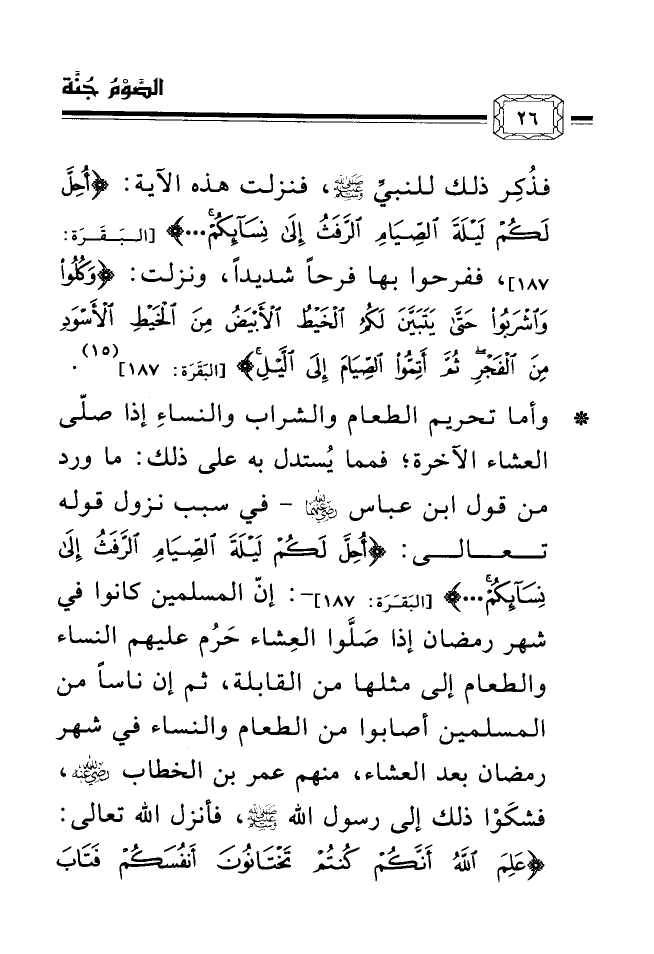 الصَّوْمُ جُنَّة
٢٦
فذُكِر ذلك للنبيِّ ﷺ، فنزلت هذه الآية: ﴿أُحِلَّ
لَكُمْ لَيْلَةَ ٱلصِّيَامِ ٱلرَّفَثُ إِلَىٰ نِسَآئِكُمْ ۚ...﴾ [البَقَـرَة:
١٨٧]، ففرحوا بها فرحاً شديداً، ونزلت: ﴿وَكُلُوا۟
وَٱشْرَبُوا۟ حَتَّىٰ يَتَبَيَّنَ لَكُمُ ٱلْخَيْطُ ٱلْأَبْيَضُ مِنَ ٱلْخَيْطِ ٱلْأَسْوَدِ
مِنَ ٱلْفَجْرِ ۖ ثُمَّ أَتِمُّوا۟ ٱلصِّيَامَ إِلَى ٱلَّيْلِ ۚ﴾ [البَقَرَة: ١٨٧](١٥).
* وأما تحريم الطعام والشراب والنساءِ إذا صلّى
العشاء الآخرة؛ فمما يُستدل به على ذلك: ما ورد
من قول ابن عباس رضي الله عنهما – في سبب نزول قوله
تـعـالـى: ﴿أُحِلَّ لَكُمْ لَيْلَةَ ٱلصِّيَامِ ٱلرَّفَثُ إِلَىٰ
نِسَآئِكُمْ ۚ...﴾ [البَقَرَة: ١٨٧]–: إنّ المسلمين كانوا في
شهر رمضان إذا صَلَّوا العِشاء حَرُم عليهم النساء
والطعام إلى مثلها من القابلة، ثم إن ناساً من
المسلمين أصابوا من الطعام والنساء في شهر
رمضان بعد العشاء، منهم عمر بن الخطاب رضي الله عنه،
فشكَوْا ذلك إلى رسول الله ﷺ، فأنزل الله تعالى:
﴿عَلِمَ ٱللَّهُ أَنَّكُمْ كُنتُمْ تَخْتَانُونَ أَنفُسَكُمْ فَتَابَ